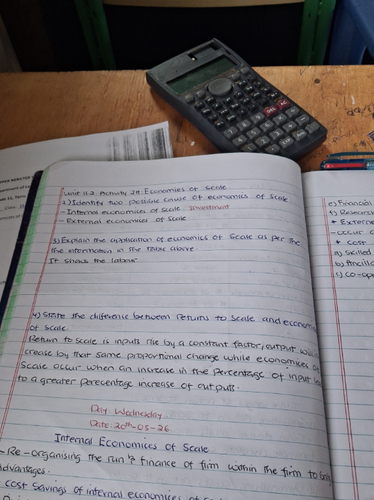 Unit 11.2 Activity 2A: Economies of Scale
2) Identify two possible cause of economics of scale
- Internal economies of scale investment
- External economies of scale
3) Explain the application of economics of scale as per the
the information in the table above
It shows the labour
4) State the difference between returns to scale and economi
of scale.
Return to scale is inputs rise by a constant factor, output will
crease by that same proportional change while economises of
Scale occur when an increase in the percentage of input
to a greater percentage increase of outputs.
Day Wednesday
Date: 20th-05-26
Internal Economices of Scale
- Re-organising the run & finance of firm within the firm to
advantages.
cost savings of internal economices of
e) Financial
f) Research
* Extern
occur
* cost
a) skilled
b) Ancill
c) co-op